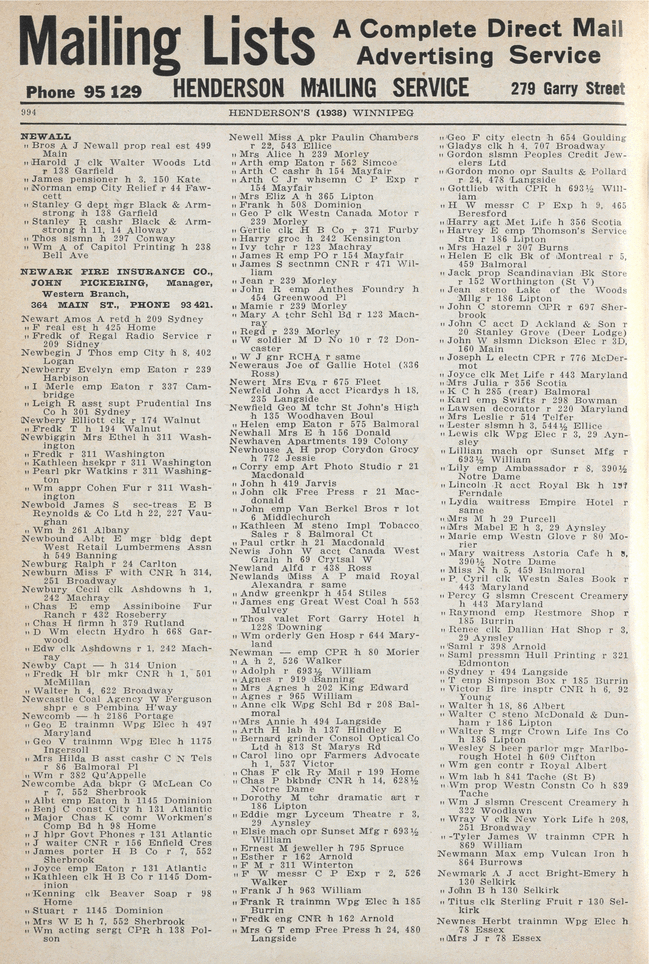 Mailing Lists
A Complete Direct Mail
Advertising Service
Phone 95 129 HENDERSON MAILING SERVICE 279 Garry Street
994 HENDERSON'S (1938) WINNIPEG
NEWALL
" Bros A J Newall prop real est 499
Main
" Harold J clk Walter Woods Ltd
r 138 Garfield
" James pensioner h 3, 150 Kate
" Norman emp City Relief r 44 Faw-
cett
" Stanley G dept mgr Black & Arm-
strong h 138 Garfield
" Stanley R cashr Black & Arm-
strong h 11, 14 Alloway
" Thos slsmn h 297 Conway
" Wm A of Capitol Printing h 238
Bell Ave
NEWARK FIRE INSURANCE CO.,
JOHN PICKERING, Manager,
Western Branch,
364 MAIN ST., PHONE 93 421.
Newart Amos A retd h 209 Sydney
" F real est h 425 Home
" Fredk of Regal Radio Service r
209 Sidney
Newbegin J Thos emp City h 8, 402
Logan
Newberry Evelyn emp Eaton r 239
Harbison
" I Merle emp Eaton r 337 Cam-
bridge
" Leigh R asst supt Prudential Ins
Co h 301 Sydney
Newbery Elliott clk r 174 Walnut
" Fredk T h 194 Walnut
Newbiggin Mrs Ethel h 311 Wash-
ington
" Fredk r 311 Washington
" Kathleen hsekpr r 311 Washington
" Pearl pkr Watkins r 311 Washing-
ton
" Wm appr Cohen Fur r 311 Wash-
ington
Newbold James S sec-treas E B
Reynolds & Co Ltd h 22, 227 Vau-
ghan
" Wm h 261 Albany
Newbound Albt E mgr bldg dept
West Retail Lumbermens Assn
h 549 Banning
Newburg Ralph r 24 Carlton
Newburn Miss F with CNR h 314,
251 Broadway
Newbury Cecil clk Ashdowns h 1,
242 Machray
" Chas E emp Assiniboine Fur
Ranch r 432 Roseberry
" Chas H firmn h 379 Rutland
" D Wm electn Hydro h 668 Gar-
wood
" Edw clk Ashdowns r 1, 242 Mach-
ray
Newby Capt — h 314 Union
" Fredk H blr mkr CNR h 1, 501
McMillan
" Walter h 4, 622 Broadway
Newcastle Coal Agency W Ferguson
shpr e s Pembina H'way
Newcomb — h 2186 Portage
" Geo E trainmn Wpg Elec h 497
Maryland
" Geo V trainmn Wpg Elec h 1175
Ingersoll
" Mrs Hilda B asst cashr C N Tels
r 86 Balmoral Pl
" Wm r 382 Qu'Appelle
Newcombe Ada bkpr G McLean Co
r 7, 552 Sherbrook
" Albt emp Eaton h 1145 Dominion
" Benj C const City h 131 Atlantic
" Major Chas K comr Workmen's
Comp Bd h 98 Home
" J hlpr Govt Phones r 131 Atlantic
" J waiter CNR r 156 Enfield Cres
" James porter H B Co r 7, 552
Sherbrook
" Joyce emp Eaton r 131 Atlantic
" Kathleen clk H B Co r 1145 Dom-
inion
" Kenning clk Beaver Soap r 98
Home
" Stuart r 1145 Dominion
" Mrs W E h 7, 552 Sherbrook
" Wm acting sergt CPR h 138 Pol-
son
Newell Miss A pkr Paulin Chambers
r 22, 543 Ellice
" Mrs Alice h 239 Morley
" Arth emp Eaton r 562 Simcoe
" Arth C cashr h 154 Mayfair
" Arth C Jr whsemn C P Exp r
154 Mayfair
" Mrs Eliz A h 365 Lipton
" Frank h 508 Dominion
" Geo P clk Westn Canada Motor r
239 Morley
" Gertie clk H B Co r 371 Furby
" Harry groc h 242 Kensington
" Ivy tchr r 123 Machray
" James R emp PO r 154 Mayfair
" James S sectnmn CNR r 471 Wil-
liam
" Jean r 239 Morley
" John R emp Anthes Foundry h
454 Greenwood Pl
" Mamie r 239 Morley
" Mary A tchr Schl Bd r 123 Mach-
ray
" Regd r 239 Morley
" W soldier M D No 10 r 72 Don-
caster
" W J gnr RCHA r same
Neweraus Joe of Gallie Hotel (336
Ross)
Newert Mrs Eva r 675 Fleet
Newfeld John A acct Picardys h 18,
235 Langside
Newfield Geo M tchr St John's High
h 135 Woodhaven Boul
" Helen emp Eaton r 575 Balmoral
Newhall Mrs E h 156 Donald
Newhaven Apartments 199 Colony
Newhouse A H prop Corydon Grocy
h 772 Jessie
" Corry emp Art Photo Studio r 21
Macdonald
" John h 419 Jarvis
" John clk Free Press r 21 Mac-
donald
" John emp Van Berkel Bros r lot
6 Middlechurch
" Kathleen M steno Impl Tobacco
Sales r 8 Balmoral Ct
" Paul crtkr h 21 Macdonald
Newis John W acct Canada West
Grain h 69 Crytsal W
Newland Alfd r 438 Ross
Newlands Miss A P maid Royal
Alexandra r same
" Andw greenkpr h 454 Stiles
" James eng Great West Coal h 553
Mulvey
" Thos valet Fort Garry Hotel h
1228 Downing
" Wm orderly Gen Hosp r 644 Mary-
land
Newman — emp CPR h 80 Morier
" A h 2, 526 Walker
" Adolph r 693½ William
" Agnes r 919 Banning
" Mrs Agnes h 202 King Edward
" Agnes r 965 William
" Anne clk Wpg Schl Bd r 208 Bal-
moral
" Mrs Annie h 494 Langside
" Arth H lab h 137 Hindley E
" Bernard grinder Consol Optical Co
Ltd h 813 St Marys Rd
" Carol lino opr Farmers Advocate
h 1, 537 Victor
" Chas F clk Ry Mail r 199 Home
" Chas P bkbndr CNR h 14, 628½
Notre Dame
" Dorothy M tchr dramatic art r
186 Lipton
" Eddie mgr Lyceum Theatre r 3,
29 Aynsley
" Elsie mach opr Sunset Mfg r 693½
William
" Ernest M jeweller h 795 Spruce
" Esther r 162 Arnold
" F M r 311 Winterton
" F W messr C P Exp r 2, 526
Walker
" Frank J h 963 William
" Frank R trainmn Wpg Elec h 185
Burrin
" Fredk eng CNR h 162 Arnold
" Mrs G T emp Free Press h 24, 480
Langside
" Geo F city electn h 654 Goulding
" Gladys clk h 4, 707 Broadway
" Gordon slsmn Peoples Credit Jew-
elers Ltd
" Gordon mono opr Saults & Pollard
r 24, 478 Langside
" Gottlieb with CPR h 693½ Will-
iam
" H W messr C P Exp h 9, 465
Beresford
" Harry agt Met Life h 356 Scotia
" Harvey E emp Thomson's Service
Stn r 186 Lipton
" Mrs Hazel r 307 Burns
" Helen E clk Bk of Montreal r 5,
459 Balmoral
" Jack prop Scandinavian Bk Store
r 152 Worthington (St V)
" Jean steno Lake of the Woods
Mllg r 186 Lipton
" John C storemn CPR r 697 Sher-
brook
" John C acct D Ackland & Son r
20 Stanley Grove (Deer Lodge)
" John W slsmn Dickson Elec r 3D,
160 Main
" Joseph L electn CPR r 776 McDer-
mot
" Joyce clk Met Life r 443 Maryland
" Mrs Julia r 356 Scotia
" K C h 285 (rear) Balmoral
" Karl emp Swifts r 298 Bowman
" Lawsen decorator r 220 Maryland
" Mrs Leslie r 514 Telfer
" Lester slsmn h 3, 544½ Ellice
" Lewis clk Wpg Elec r 3, 29 Ayn-
sley
" Lillian mach opr Sunset Mfg r
693½ William
" Lily emp Ambassador r 8, 390½
Notre Dame
" Lincoln R acct Royal Bk h 137
Ferndale
" Lydia waitress Empire Hotel r
same
" Mrs M h 29 Purcell
" Mrs Mabel E h 3, 29 Aynsley
" Marie emp Westn Glove r 80 Mo-
rier
" Mary waitress Astoria Cafe h 8,
390½ Notre Dame
" Miss N h 5, 459 Balmoral
" P Cyril clk Westn Sales Book r
443 Maryland
" Percy G slsmn Crescent Creamery
h 443 Maryland
" Raymond emp Restmore Shop r
185 Burrin
" Renee clk Dallian Hat Shop r 3,
29 Aynsley
" Saml r 398 Arnold
" Saml pressmn Hull Printing r 321
Edmonton
" Sydney r 494 Langside
" T emp Simpson Box r 185 Burrin
" Victor B fire insptr CNR h 6, 92
Young
" Walter h 18, 86 Albert
" Walter C steno McDonald & Dun-
ham r 186 Lipton
" Walter S mgr Crown Life Ins Co
h 186 Lipton
" Wesley S beer parlor mgr Marlbo-
rough Hotel h 609 Clifton
" Wm gen contr r Royal Albert
" Wm lab h 841 Tache (St B)
" Wm prop Westn Constn Co h 839
Tache
" Wm J slsmn Crescent Creamery h
322 Woodlawn
" Wray V clk New York Life h 208,
251 Broadway
" -Tyler James W trainmn CPR h
869 William
Newmann Max emp Vulcan Iron h
864 Burrows
Newmark A J acct Bright-Emery h
130 Selkirk
" John B h 130 Selkirk
" Titus clk Sterling Fruit r 130 Sel-
kirk
Newnes Herbt trainmn Wpg Elec h
78 Essex
" Mrs J r 78 Essex